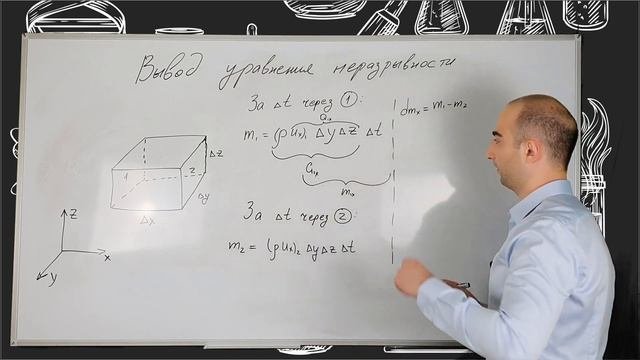 Вывод уравнения неразрывности
За Δt через ①:
m₁ = (ρUₓ)₁ ΔyΔz Δt
За Δt через ②:
m₂ = (ρUₓ)₂ ΔyΔzΔt
dmₓ = m₁-m₂
1
2
Δz
Δy
Δx
z
x
y